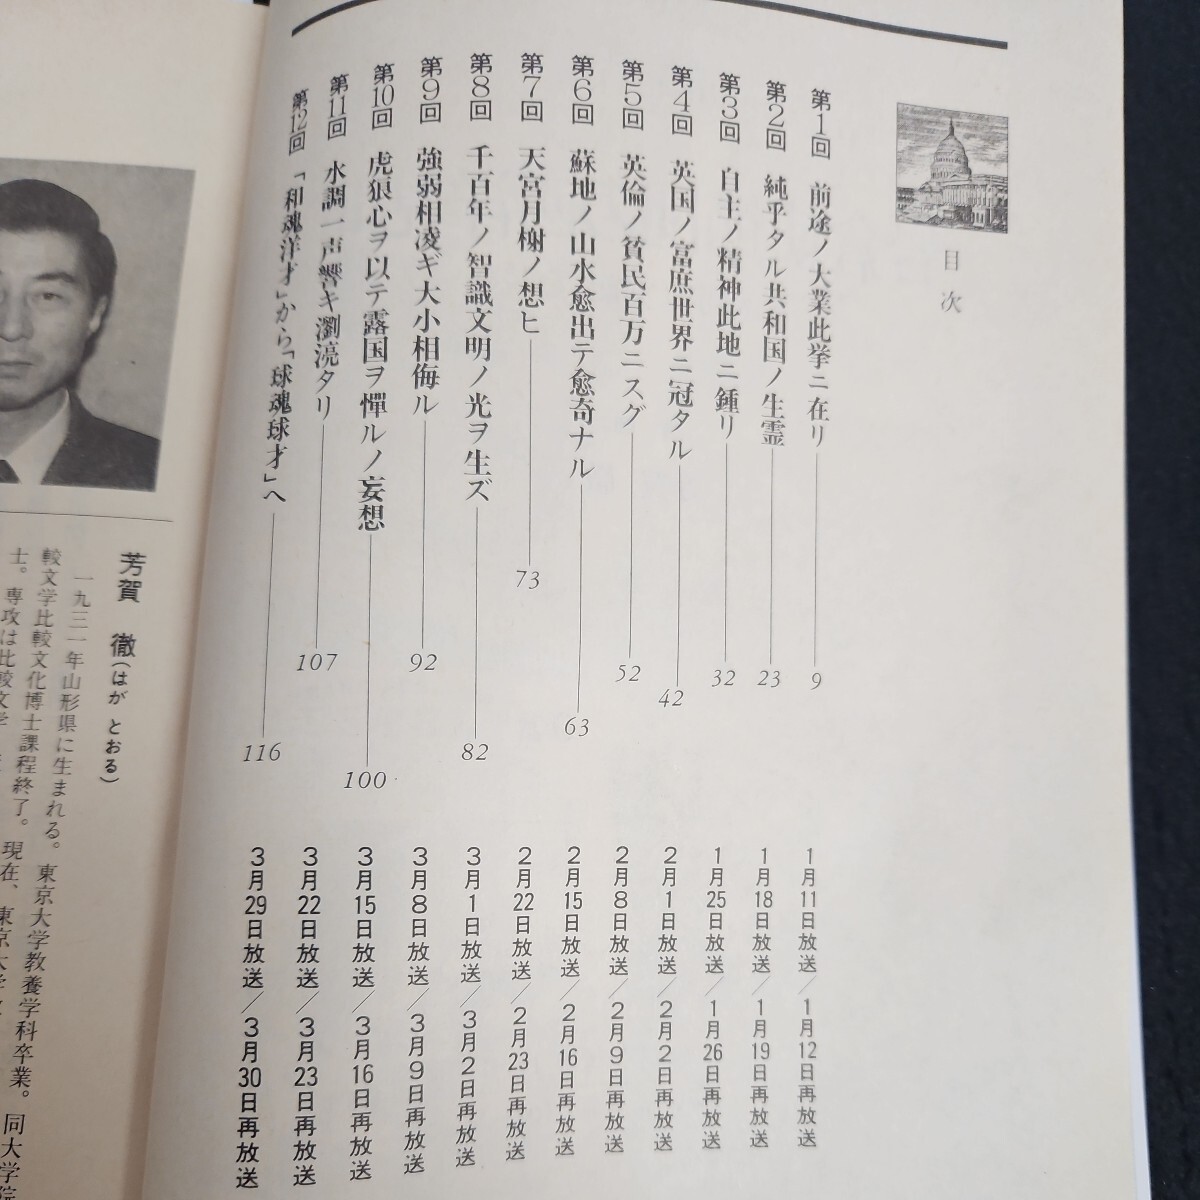 目次
第1回 前途ノ大業此挙ニ在リ 9 1月11日放送／1月12日再放送
第2回 純乎タル共和国ノ生霊 23 1月18日放送／1月19日再放送
第3回 自主ノ精神此地ニ鍾リ 32 1月25日放送／1月26日再放送
第4回 英国ノ富庶世界ニ冠タル 42 2月1日放送／2月2日再放送
第5回 英倫ノ貧民百万ニスグ 52 2月8日放送／2月9日再放送
第6回 蘇地ノ山水愈出テ愈奇ナル 63 2月15日放送／2月16日再放送
第7回 天宮月榭ノ想ヒ 73 2月22日放送／2月23日再放送
第8回 千百年ノ智識文明ノ光ヲ生ズ 82 3月1日放送／3月2日再放送
第9回 強弱相凌ギ大小相侮ル 92 3月8日放送／3月9日再放送
第10回 虎狼心ヲ以テ露国ヲ憚ルノ妄想 100 3月15日放送／3月16日再放送
第11回 水調一声響キ瀏湸タリ 107 3月22日放送／3月23日再放送
第12回 「和魂洋才」から「球魂球才」へ 116 3月29日放送／3月30日再放送
芳賀 徹（はが とおる）
一九三一年山形県に生まれる。東京大学教養学科卒業。同大学院
較文学比較文化博士課程終了。現在、東京大学
士。専攻は比較文学